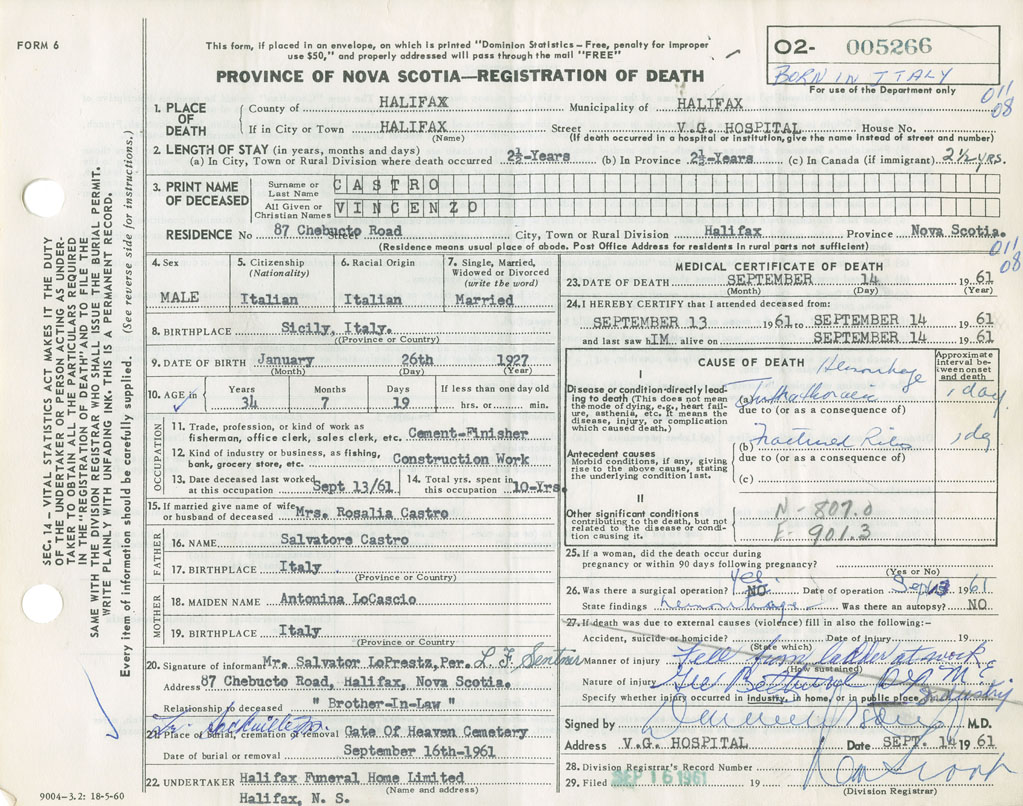 FORM 6
This form, if placed in an envelope, on which is printed "Dominion Statistics – Free, penalty for improper
use $50," and properly addressed will pass through the mail "FREE"
02- 005266
BORN IN ITALY
For use of the Department only
011
08
PROVINCE OF NOVA SCOTIA—REGISTRATION OF DEATH
1. PLACE OF DEATH
County of HALIFAX Municipality of HALIFAX
If in City or Town HALIFAX Street V.G. HOSPITAL House No.
(Name) (If death occurred in a hospital or institution, give the name instead of street and number)
2. LENGTH OF STAY (in years, months and days)
(a) In City, Town or Rural Division where death occurred 2½-Years (b) In Province 2½-Years (c) In Canada (if immigrant) 2½ YRS.
3. PRINT NAME OF DECEASED
Surname or Last Name CASTRO
All Given or Christian Names VINCENZO
RESIDENCE No 87 Chebucto Road City, Town or Rural Division Halifax Province Nova Scotia.
Street
(Residence means usual place of abode. Post Office Address for residents in rural parts not sufficient)
011
08
4. Sex
MALE
5. Citizenship (Nationality)
Italian
6. Racial Origin
Italian
7. Single, Married, Widowed or Divorced (write the word)
Married
8. BIRTHPLACE Sicily, Italy.
(Province or Country)
9. DATE OF BIRTH January 26th 1927
(Month) (Day) (Year)
10. AGE in Years Months Days If less than one day old
34 7 19 hrs. or min.
OCCUPATION
11. Trade, profession, or kind of work as
fisherman, office clerk, sales clerk, etc. Cement-Finisher
12. Kind of industry or business, as fishing,
bank, grocery store, etc. Construction Work
13. Date deceased last worked
at this occupation Sept 13/61
14. Total yrs. spent in
this occupation 10-Yrs.
15. If married give name of wife
or husband of deceased Mrs. Rosalia Castro
FATHER
16. NAME Salvatore Castro
17. BIRTHPLACE Italy
(Province or Country)
MOTHER
18. MAIDEN NAME Antonina LoCascio
19. BIRTHPLACE Italy
(Province or Country)
20. Signature of informant Mr. Salvator LoPrestz, Per.
Address 87 Chebucto Road, Halifax, Nova Scotia.
Relationship to deceased " Brother-In-Law "
21. Place of burial, cremation or removal Gate Of Heaven Cemetery
Date of burial or removal September 16th-1961
22. UNDERTAKER Halifax Funeral Home Limited
(Name and address)
Halifax, N. S.
MEDICAL CERTIFICATE OF DEATH
23. DATE OF DEATH SEPTEMBER 14 1961
(Month) (Day) (Year)
24. I HEREBY CERTIFY that I attended deceased from:
SEPTEMBER 13 1961 to SEPTEMBER 14 1961
and last saw hIM alive on SEPTEMBER 14 1961
CAUSE OF DEATH
Approximate interval between onset and death
I
Disease or condition directly leading to death (This does not mean the mode of dying, e.g., heart failure, asthenia, etc. It means the disease, injury, or complication which caused death.)
Hemorrhage
(a) Intrathoracic 1 day
due to (or as a consequence of)
Antecedent causes
Morbid conditions, if any, giving rise to the above cause, stating the underlying condition last.
(b) Fractured Ribs 1 day
due to (or as a consequence of)
(c)
II
Other significant conditions
contributing to the death, but not related to the disease or condition causing it.
N - 807.0
E - 901.3
25. If a woman, did the death occur during
pregnancy or within 90 days following pregnancy?
(Yes or No)
26. Was there a surgical operation? Yes. NO Date of operation Sept 13 1961
State findings hemorrhage Was there an autopsy? NO
27. If death was due to external causes (violence) fill in also the following:—
Accident, suicide or homicide? Date of injury 19
(State which)
Manner of injury Fell from ladder at work
(How sustained)
Nature of injury
Specify whether injury occurred in industry, in home, or in public place industry
Signed by M.D.
Address V.G. HOSPITAL Date SEPT. 14 1961
28. Division Registrar's Record Number
29. Filed SEP 16 1961 19
(Division Registrar)
SEC. 14 – VITAL STATISTICS ACT MAKES IT THE DUTY
OF THE UNDERTAKER OR PERSON ACTING AS UNDER-
TAKER TO OBTAIN ALL THE PARTICULARS REQUIRED
IN THE "REGISTRATION OF DEATH" AND TO FILE THE
SAME WITH THE DIVISION REGISTRAR WHO SHALL ISSUE THE BURIAL PERMIT.
WRITE PLAINLY WITH UNFADING INK. THIS IS A PERMANENT RECORD.
Every item of information should be carefully supplied. (See reverse side for instructions.)
9004-3.2: 18-5-60